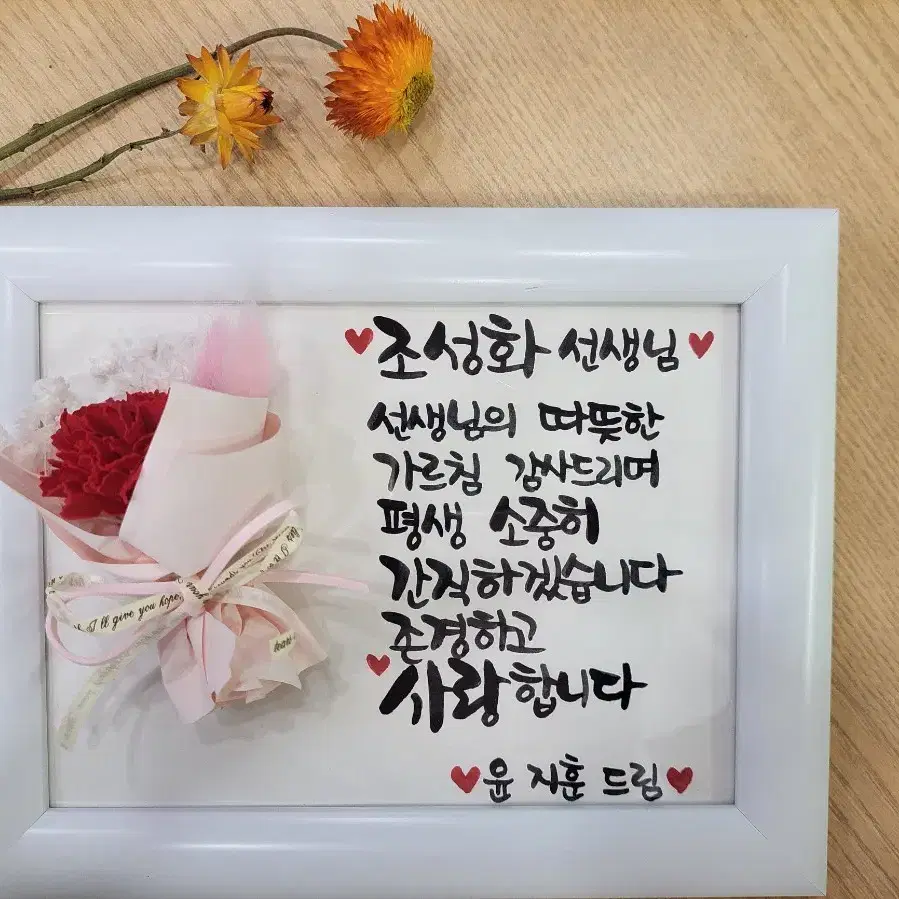 조성화 선생님
선생님의 따뜻한
가르침 감사드리며
평생 소중히
간직하겠습니다
존경하고
사랑합니다
윤 지훈 드림
I'll give you hope